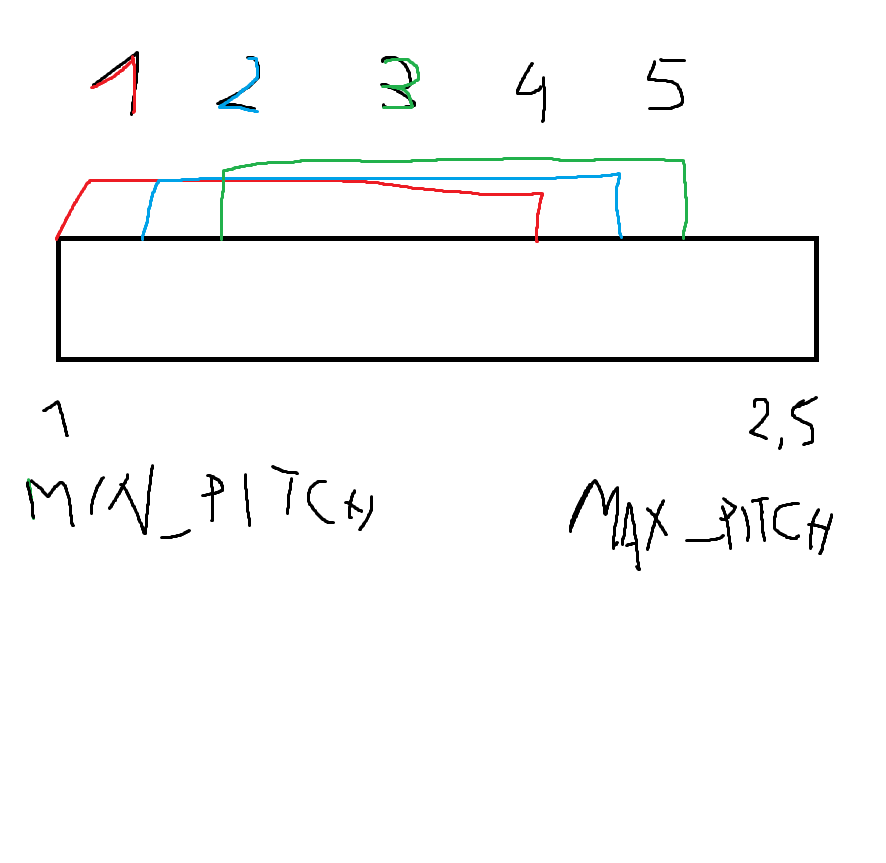 1 2 3 4 5
1 2,5
MIN_PITCH MAX_PITCH